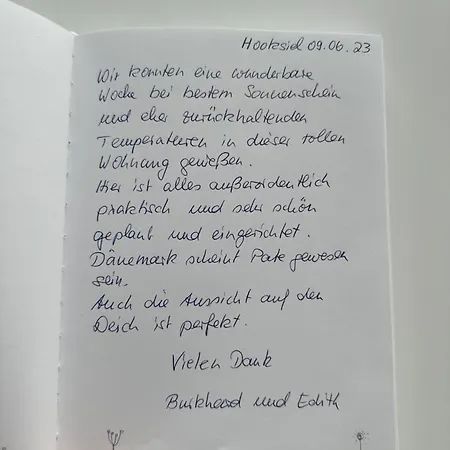 Hooksiel 09.06.23
Wir konnten eine wunderbare
Woche bei bestem Sonnenschein
und eher zurückhaltenden
Temperaturen in dieser tollen
Wohnung genießen.
Hier ist alles außerordentlich
praktisch und sehr schön
geplant und eingerichtet.
Dänemark scheint Pate gewesen
sein.
Auch die Aussicht auf den
Deich ist perfekt.
Vielen Dank
Burkhard und Edith